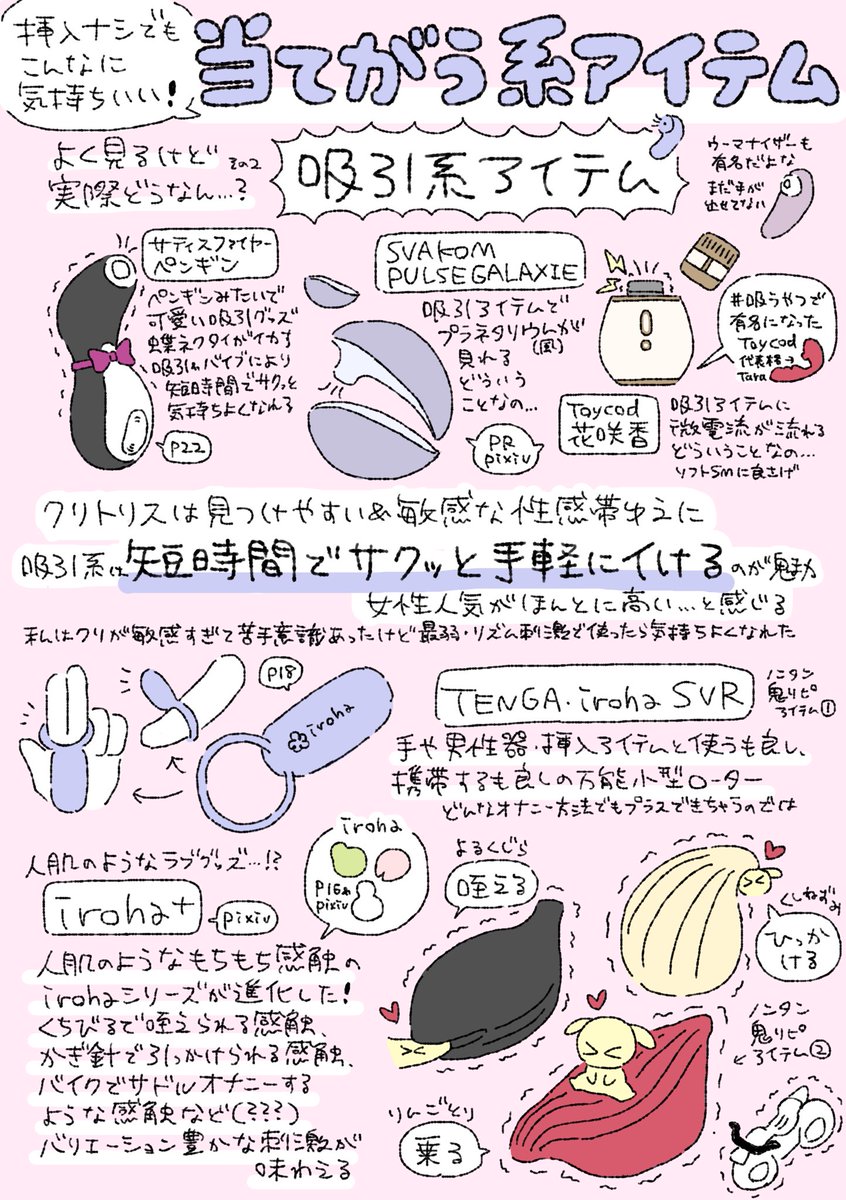 挿入ナシでも
こんなに
気持ちいい!
当てがう系アイテム
よく見るけど その2
実際どうなん…?
吸引系アイテム
ウーマナイザーも
有名だよな
まだ手が
出せてない
サティスファイヤー
ペンギン
ペンギンみたいで
可愛い吸引グッズ
蝶ネクタイがイカす
吸引&バイブにより
短時間でサクッと
気持ちよくなれる
P22
SVAKOM
PULSE GALAXIE
吸引アイテムで
プラネタリウムが
(風)
見れる
どういう
ことなの…
PR
pixiv
#吸うやつで
有名になった
Toycod
代表格→
Tara
Toycod
花咲香
吸引アイテムに
微電流が流れる
どういうことなの…
ソフトSMに良さげ
クリトリスは見つけやすい&敏感な性感帯ゆえに
吸引系は短時間でサクッと手軽にイけるのが魅力
女性人気がほんとに高い…と感じる
私はクリが敏感すぎて苦手意識あったけど最弱・リズム刺激で使ったら気持ちよくなれた
P18
iroha
TENGA・iroha SVR
ノンタン
鬼リピ
アイテム①
手や男性器・挿入アイテムと使うも良し、
携帯するも良しの万能小型ローター
どんなオナニー方法でもプラスできちゃうのでは
人肌のようなラブグッズ…!?
iroha+
pixiv
iroha
P16&
pixiv
人肌のようなもちもち感触の
irohaシリーズが進化した!
くちびるで咥えられる感触、
かぎ針で引っかけられる感触、
バイクでサドルオナニーする
ような感触など(???)
バリエーション豊かな刺激が
味わえる
よるくじら
咥える
くしねずみ
ひっか
ける
りんごとり
乗る
ノンタン
鬼リピ
アイテム②